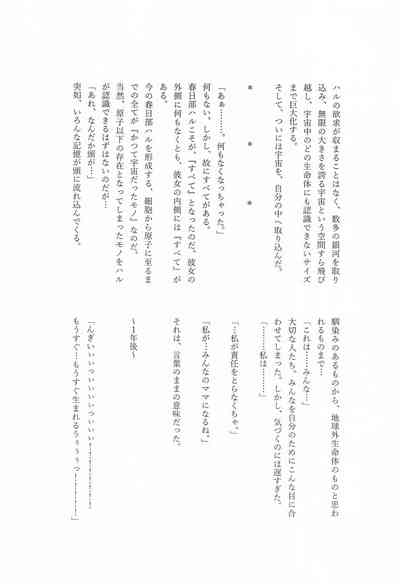 ハルの欲求が収まることはなく、数多の銀河を取り
込み、無限の大きさを誇る宇宙という空間すら飛び
越し、宇宙中のどの生命体にも認識できないサイズ
まで巨大化する。
そして、ついには宇宙を、自分の中へ取り込んだ。
＊　＊　＊
「あぁ………。何もなくなっちゃった。」
何もない、しかし、故にすべてがある。
春日部ハルこそが、『すべて』となったのだ。彼女の
外側に何もなくとも、彼女の内側には『すべて』が
ある。
今の春日部ハルを形成する、細胞から原子に至るま
での全てが『かつて宇宙だったモノ』なのだ。
当然、原子以下の存在となってしまったモノをハル
が認識できるはずはないのだが…
「あれ、なんだか頭が…」
突如、いろんな記憶が頭に流れ込んでくる。
馴染みのあるものから、地球外生命体のものと思わ
れるものまで…
「これは……みんな…」
大切な人たち、みんなを自分のためにこんな目に合
わせてしまった。しかし、気づくのには遅すぎた。
「………私は………」
「…私が責任をとらなくちゃ。」
『私が…みんなのママになるね。』
それは、言葉のままの意味だった。
～1年後～
「んぎいぃぃっぃぃいぃっいぃぃ
もうすぐ…もうすぐ生まれるぅぅぅぅっ